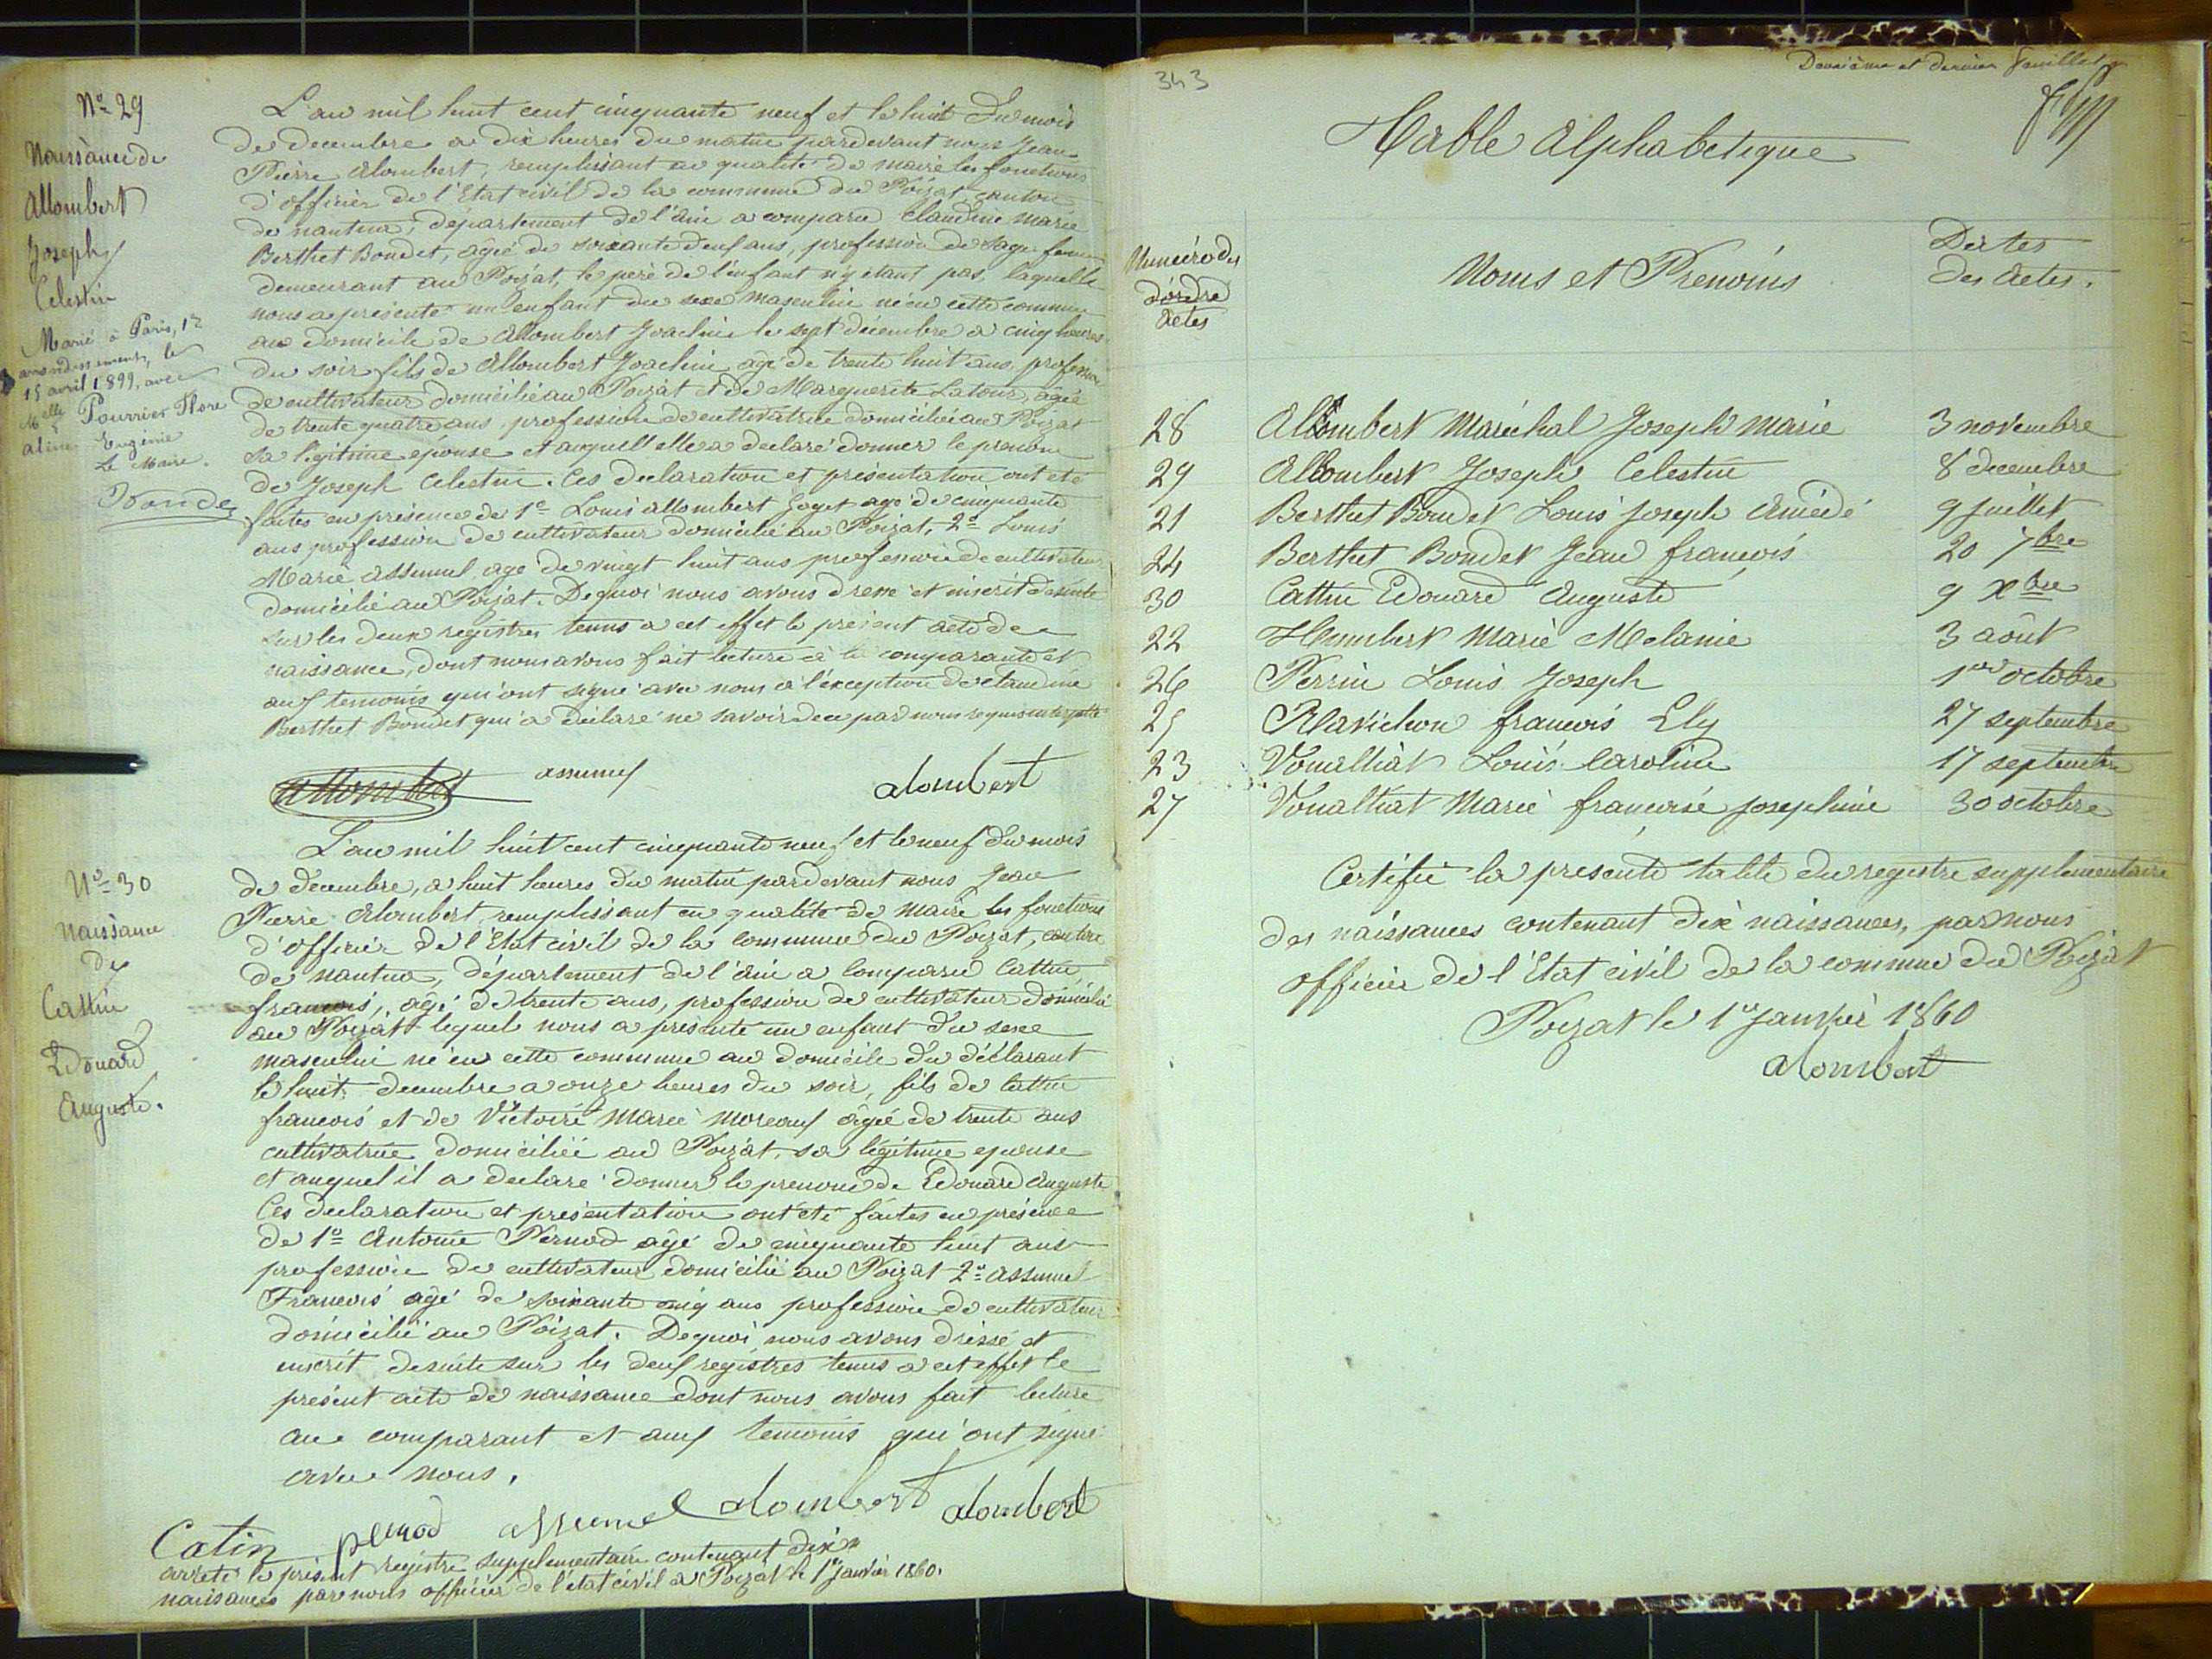 Nº 29
Naissance de
Allombert
Joseph
Celestin
Marié à Paris, 12
arrondissement, le
15 avril 1899, avec
Melle Pourrier Flore
aline Eugénie
Le Maire.
L'an mil huit cent cinquante neuf et le huit du mois
de decembre a dix heures du matin pardevant nous Jean
Pierre alombert, remplissant en qualité de maire les fonctions
d'officier de l'Etat civil de la commune du Poizat, canton
de nantua, département de l'ain a comparu Claudine Marie
Berthet Bondet, agée de soixante deux ans, profession de Sage femme
demeurant au Poizat, le père de l'enfant n'y étant pas, laquelle
nous a présenté un enfant du sexe masculin né en cette commune
au domicile de Allombert Joachin le sept décembre a cinq heures
du soir fils de Allombert Joachin agé de trente huit ans, profession
de cultivateur domicilié au Poizat et de Marguerite Latour, agée
de trente quatre ans, profession de cultivatrice domiciliée au Poizat
sa légitime épouse et auquell elle a declaré donner le prenom
de Joseph Celestin. Ces declaration et présentation ont été
faites en présence de 1º Louis allombert Goget agé de cinquante
ans profession de cultivateur domicilié au Poizat, 2º Louis
Marie assumel agé de vingt huit ans profession de cultivateur
domicilié au Poizat. De quoi nous avons dressé et inscrit desuite
sur les deux registres tenus a cet effet le présent acte de
naissance, dont nous avons fait lecture à la comparante et
aux temoins qui ont signé avec nous à l'exception de claudine
Berthet Bondet qui a déclaré ne savoir de ce par nous requis interpellé
allombert assumel alombert
Nº 30
naissance
de
Cattin
Edouard
Auguste.
L'an mil huit cent cinquante neuf et le neuf du mois
de decembre, a huit heures du matin pardevant nous Jean
Pierre Alombert, remplissant en qualité de maire les fonctions
d'officier de l'Etat civil de la commune du Poizat, canton
de nantua, département de l'ain a comparu Cattin
francois, agé de trente ans, profession de cultivateur domicilié
au Poizat lequel nous a présenté un enfant du sexe
masculin né en cette commune au domicile du déclarant
le huit decembre a onze heures du soir, fils de Cattin
francois et de Victoire Marie Moreaux agée de trente ans
cultivatrice domiciliée au Poizat, sa légitime epouse
et auquel il a declaré donner le prenom de Edouard Auguste
Ces declaration et présentation ont été faites en présence
de 1º Antoine Pernod agé de cinquante huit ans
profession de cultivateur domicilié au Poizat 2º assumel
Francois agé de soixante cinq ans profession de cultivateur
domicilié au Poizat. De quoi nous avons dressé et
inscrit desuite sur les deux registres tenus a cet effet le
présent acte de naissance dont nous avons fait lecture
au comparant et aux temoins qui ont signé
avec nous.
Catin pernod assumel alombert alombert
arreté le présent registre supplementaire contenant dix
naissances par nous officier de l'état civil a Poizat le 1er janvier 1860.
343
Deuxième et dernier feuillet
Table Alphabetique
Numéro des
d'ordre
actes
Noms et Prenoms
Dates
des actes.
28 Allombert Maréchal Joseph Marie 3 novembre
29 Allombert Joseph Celestin 8 decembre
21 Berthet Bondet Louis Joseph Amédé 9 juillet
24 Berthet Bondet Jean francois 20 7bre
30 Cattin Edouard Auguste 9 Xbre
22 Humbert Marie Melanie 3 août
26 Perrin Louis Joseph 1er octobre
25 Ravichon francois Ely 27 septembre
23 Vouälliat Louis Caroline 17 septembre
27 Vouälliat Marie francoise Josephine 30 octobre
Certifié la presente table du registre supplementaire
des naissances contenant dix naissances, par nous
officier de l'Etat civil de la commune du Poizat
Poizat le 1er janvier 1860
alombert